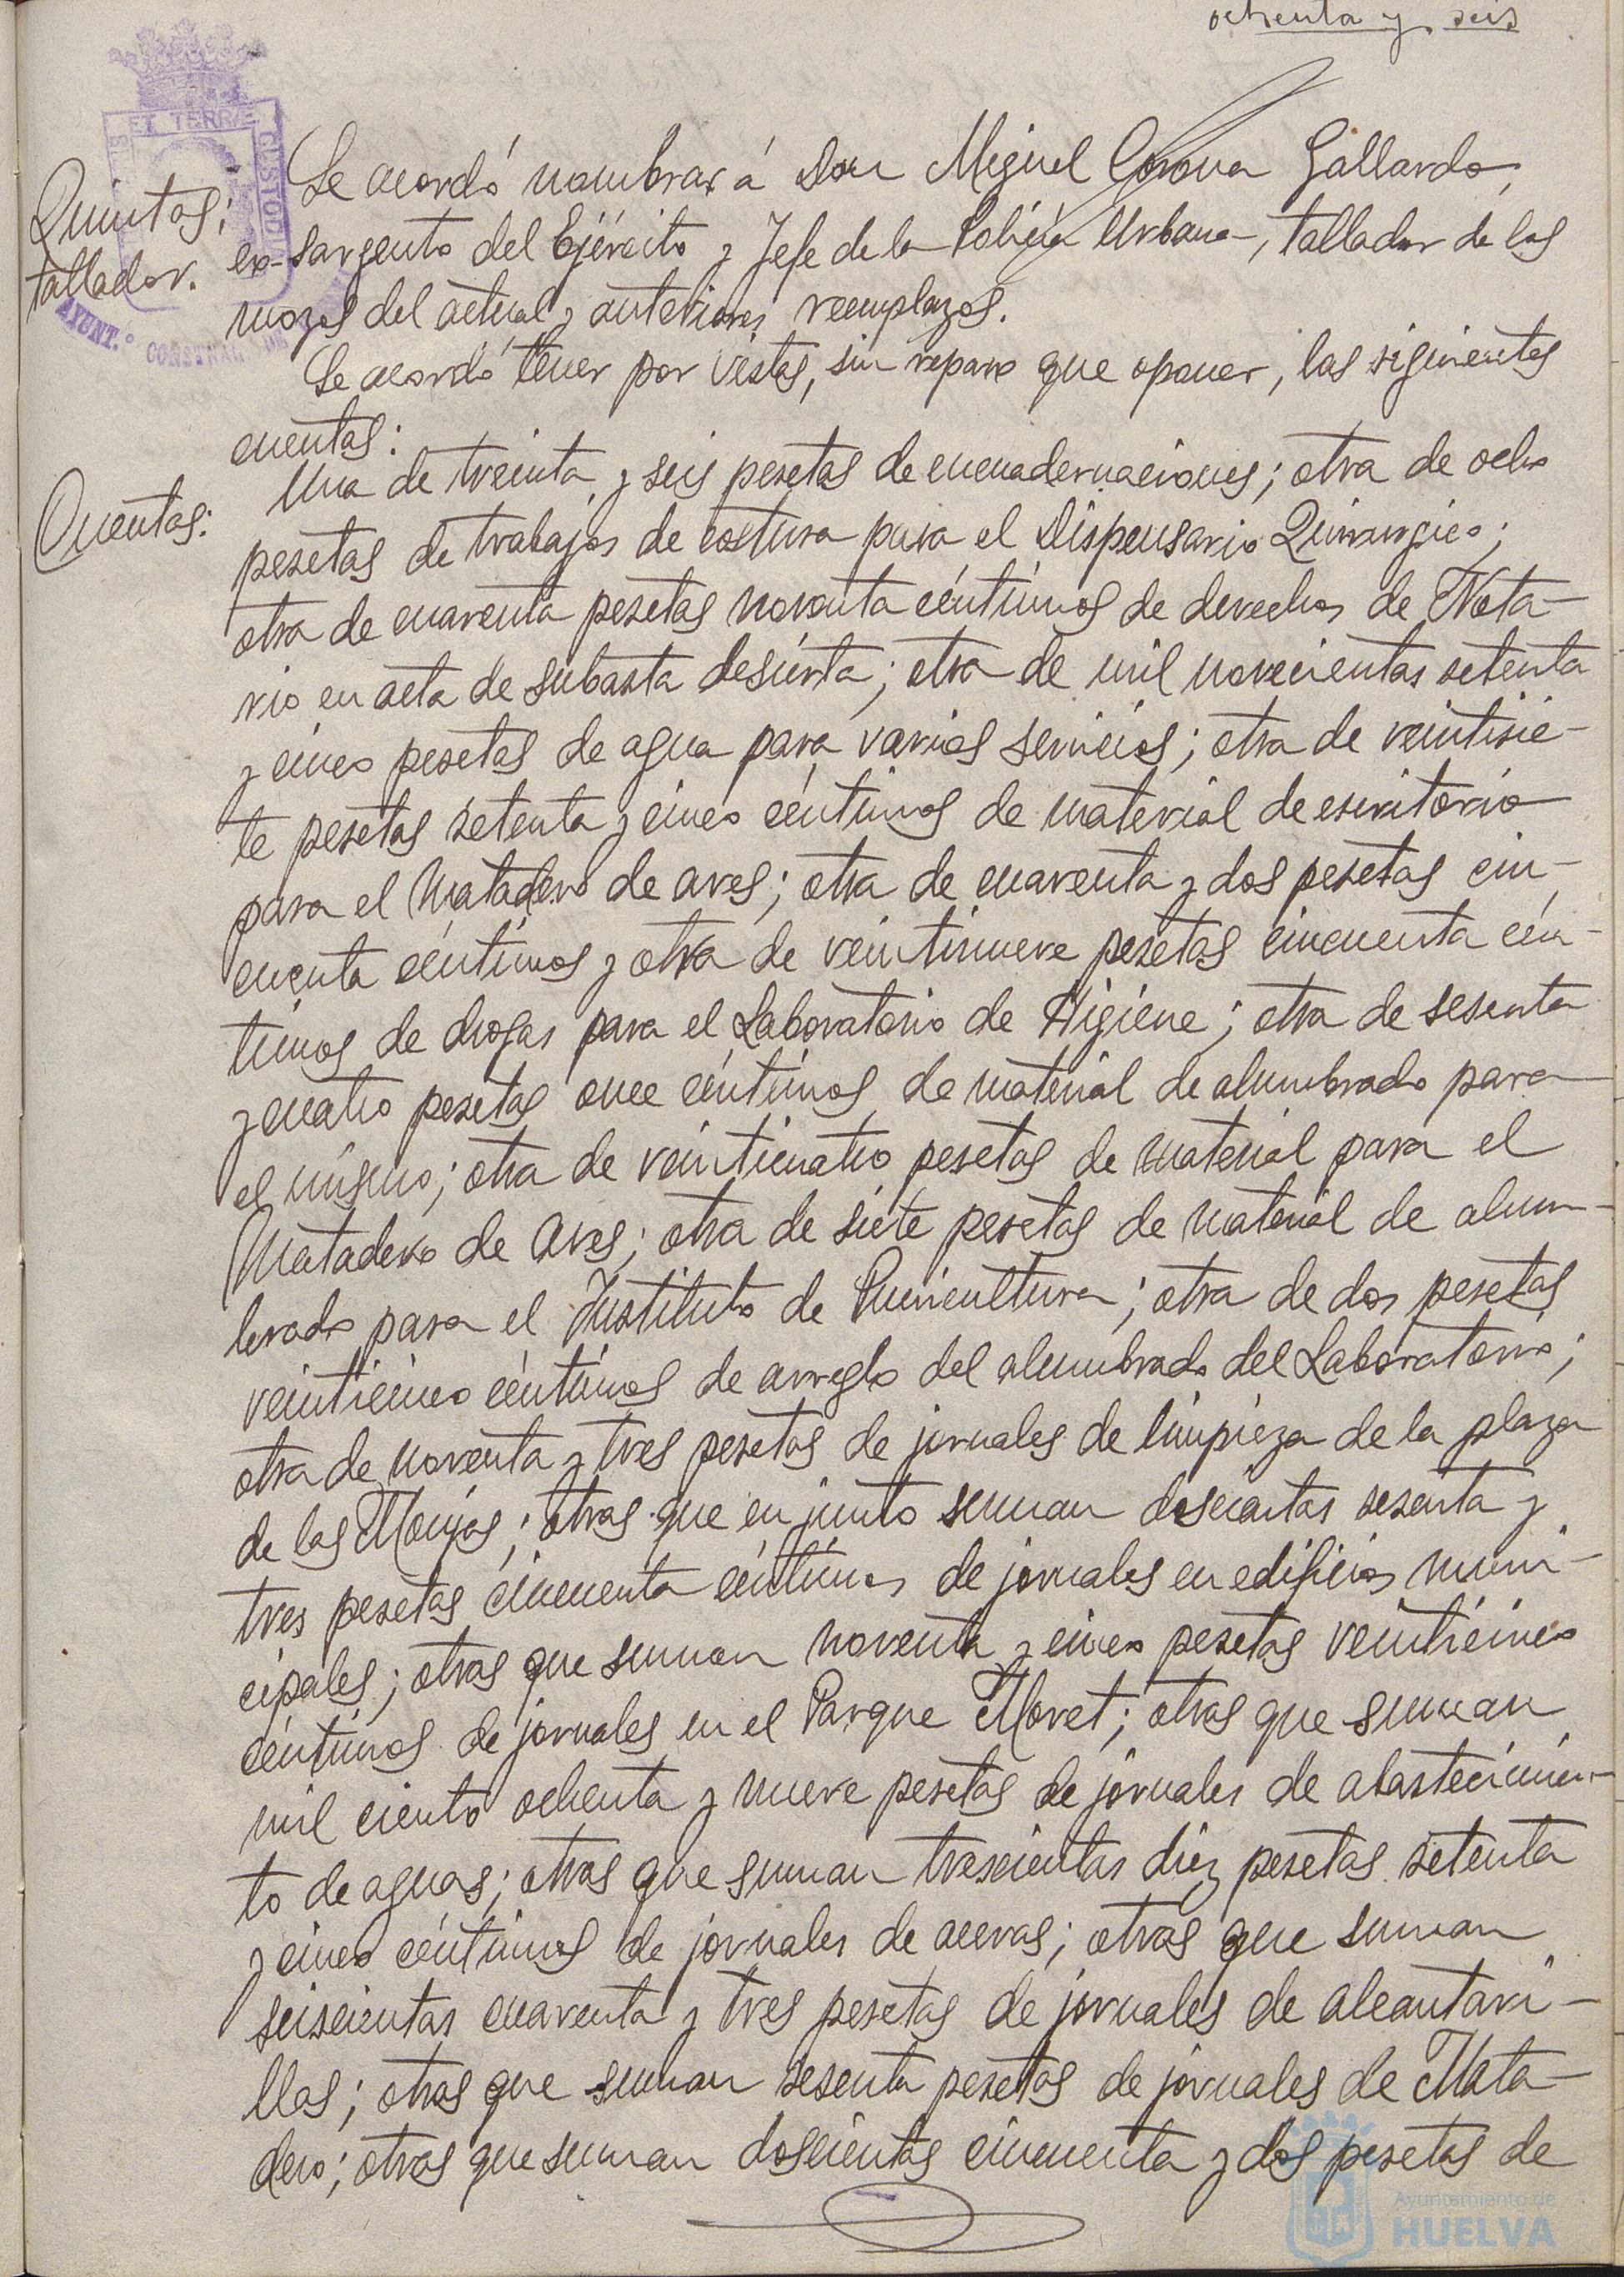 ochenta y seis
ET TERRÆ
CUSTODIA
AYUNT.º CONSTNAL DE
Quintas;
tallador.
Se acordó nombrar á Don Miguel Corona Gallardo,
ex-sargento del Ejército y Jefe de la Policía Urbana, tallador de los
mozos del actual y anteriores reemplazos.
Se acordó tener por vistas, sin reparo que oponer, las siguientes
cuentas:
Cuentas:
Una de treinta y seis pesetas de encuadernaciones; otra de ocho
pesetas de trabajos de costura para el Dispensario Quirurgico;
otra de cuarenta pesetas noventa céntimos de derechos de Nota-
rio en acta de subasta desierta; otra de mil novecientas setenta
y cinco pesetas de agua para varios servicios; otra de veintisie-
te pesetas setenta y cinco céntimos de material de escritorio
para el Matadero de aves; otra de cuarenta y dos pesetas cin-
cuenta céntimos y otra de veintinueve pesetas cincuenta cén-
timos de drogas para el Laboratorio de Higiene; otra de sesenta
y cuatro pesetas once céntimos de material de alumbrado para
el mismo; otra de veinticuatro pesetas de material para el
Matadero de Aves; otra de siete pesetas de material de alum-
brado para el Instituto de Puericultura; otra de dos pesetas
veinticinco céntimos de arreglo del alumbrado del Laboratorio;
otra de noventa y tres pesetas de jornales de limpieza de la plaza
de las Monjas; otras que en junto suman doscientas sesenta y
tres pesetas cincuenta céntimos de jornales en edificios muni-
cipales; otras que suman noventa y cinco pesetas veinticinco
céntimos de jornales en el Parque Moret; otras que suman
mil ciento ochenta y nueve pesetas de jornales de abastecimien-
to de aguas; otras que suman trescientas diez pesetas setenta
y cinco céntimos de jornales de aceras; otras que suman
seiscientas cuarenta y tres pesetas de jornales de alcantari-
llas; otras que suman sesenta pesetas de jornales de Mata-
dero; otras que suman doscientas cincuenta y dos pesetas de
Ayuntamiento de
HUELVA